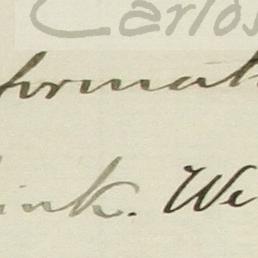 Carlos
format
ink. We